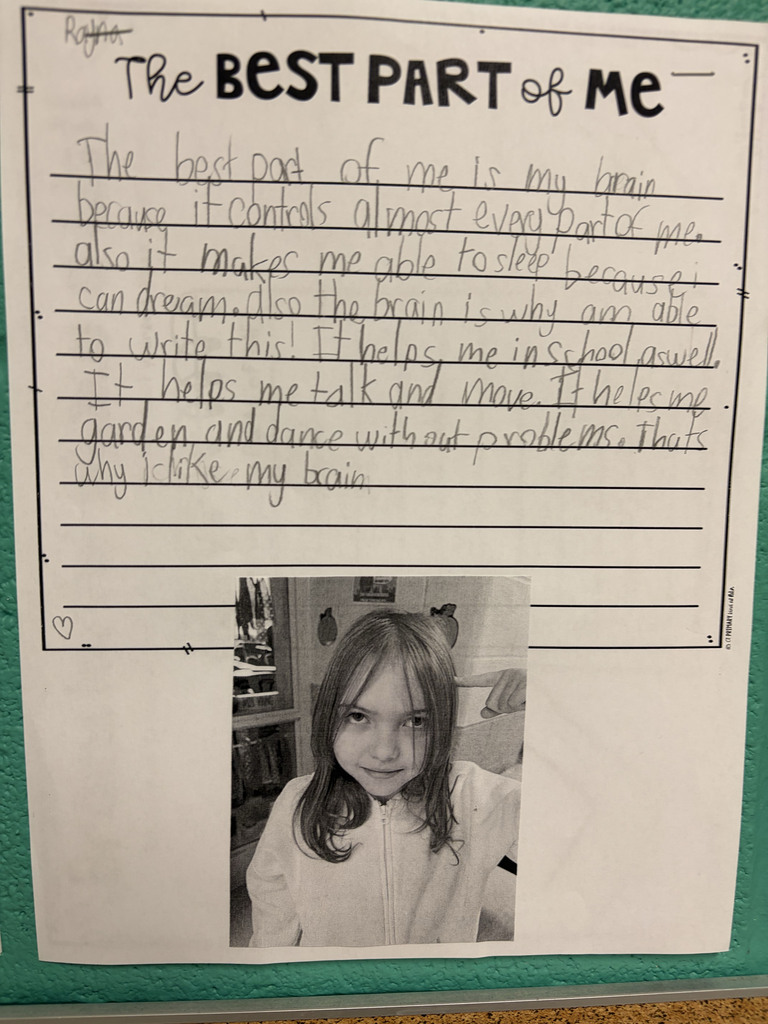 The BEST PART of ME
The best part of me is my brain
because it controls almost every part of me.
also it makes me able to sleep because i
can dream. also the brain is why am able
to write this! It helps me in school aswell.
It helps me talk and move. It helps me
garden, and dance without problems. thats
why i like my brain